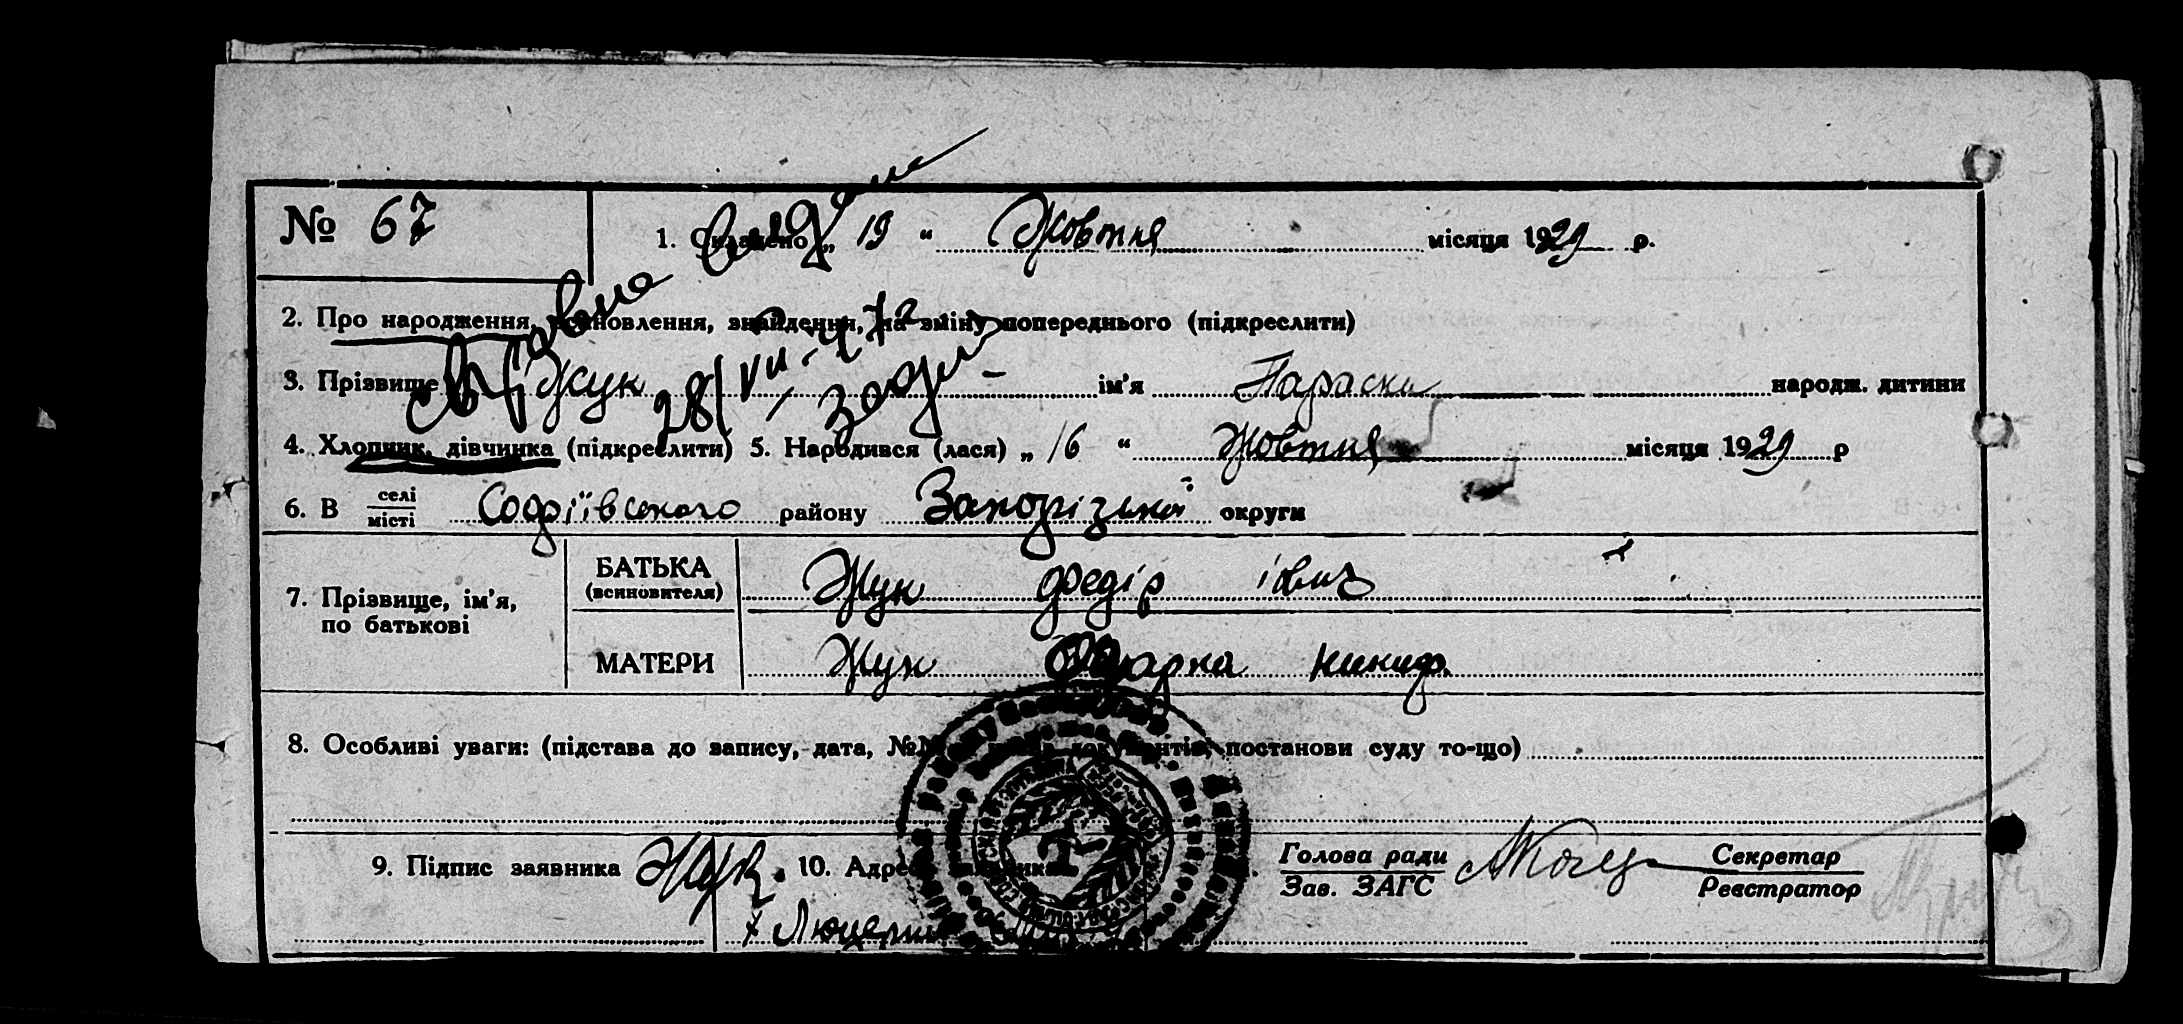 № 67
1. Складено „ 19 “ Жовтня місяця 1929 р.
2. Про народження, всиновлення, знайдення, на зміну попереднього (підкреслити)
Справка видана
28/VII-47
3. Прізвище Жук ім’я Параска народж. дитини
4. Хлопчик, дівчинка (підкреслити) 5. Народився (лася) „ 16 “ Жовтня місяця 1929 р
6. В селі місті Софіївського району Запорізької округи
7. Прізвище, ім’я, по батькові
БАТЬКА (всиновителя) Жук Федір
МАТЕРИ Жук Одарка Никиф.
8. Особливі уваги: (підстава до запису, дата, постанови суду то-що)
9. Підпис заявника Жук. 10. Адреса заявника
Голова ради Секретар
Зав. ЗАГС Реєстратор
х Люцерна